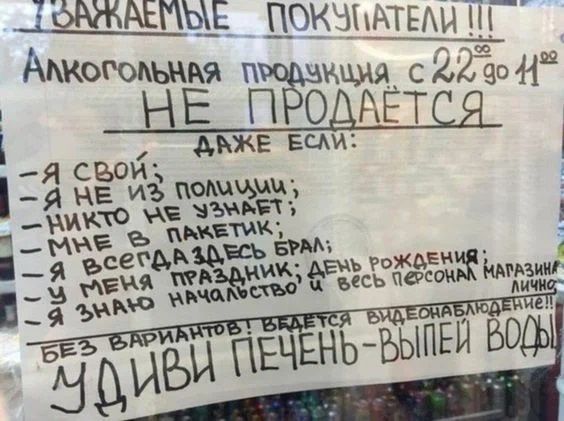 УВАЖАЕМЫЕ ПОКУПАТЕЛИ!!!
Алкогольная продукция с 22⁰⁰ до 11⁰⁰
НЕ ПРОДАЁТСЯ
ДАЖЕ ЕСЛИ:
- Я СВОЙ;
- Я НЕ ИЗ ПОЛИЦИИ;
- НИКТО НЕ УЗНАЕТ;
- МНЕ В ПАКЕТИК;
- Я ВСЕГДА ЗДЕСЬ БРАЛ;
- У МЕНЯ ПРАЗДНИК; ДЕНЬ РОЖДЕНИЯ;
- Я ЗНАЮ НАЧАЛЬСТВО и ВЕСЬ ПЕРСОНАЛ МАГАЗИНА
ЛИЧНО
БЕЗ ВАРИАНТОВ! ВЕДЁТСЯ ВИДЕОНАБЛЮДЕНИЕ!!
УДИВИ ПЕЧЕНЬ-ВЫПЕЙ ВОДЫ